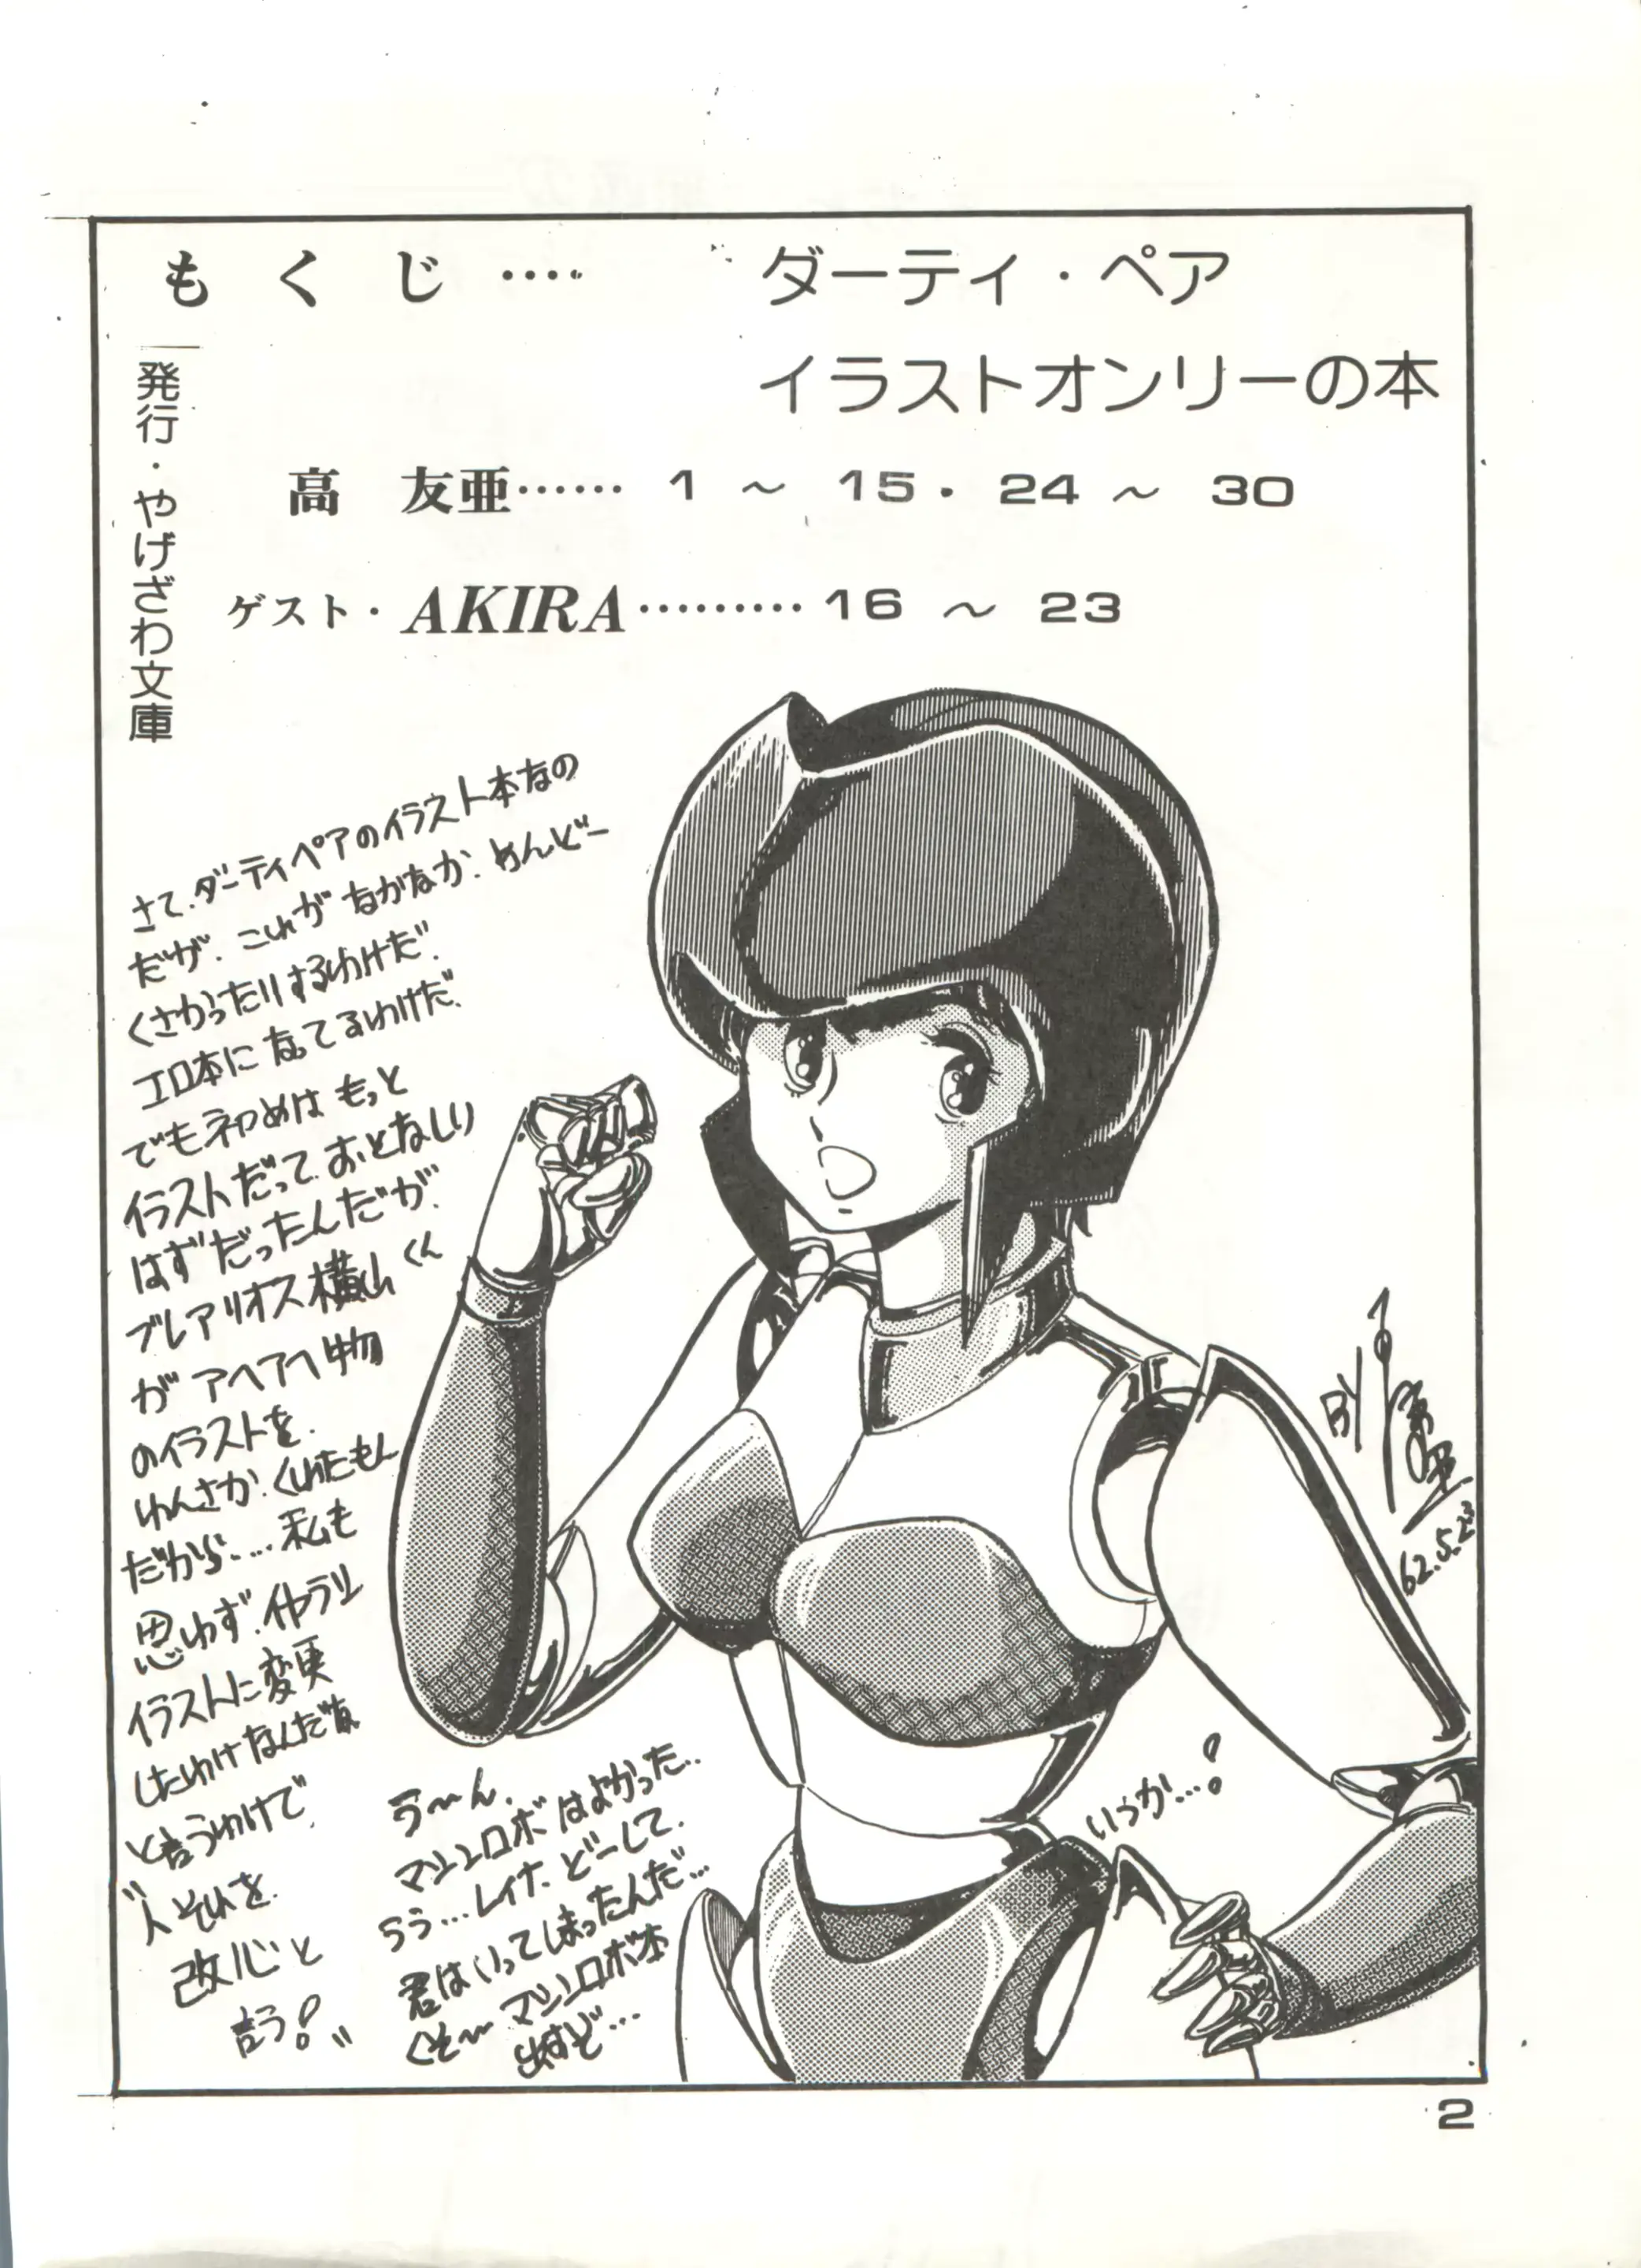 もくじ‥‥
ダーティ・ペア
イラストオンリーの本
発行・やげざわ文庫
高 友亜…… 1 ～ 15・24 ～ 30
ゲスト・AKIRA……… 16 ～ 23
さて.ダーティペアのイラスト本なの
だが.これがなかなか.めんどー
くさかったりするわけだ.
エロ本になってるわけだ.
でもネ初めはもっと
イラストだって.おとなしい
はずだったんだが.
ブレアリオス横山くん
がアヘアヘ物
のイラストを.
わんさか.くれたもん
だから....私も
思わず.イヤラしい
イラストに変更
したわけなんだな
と言うわけで.
"人それを.
改心と
言う!"
う〜ん.
マシンロボはよかった..
うう...レイナ.どーして.
君はいってしまったんだ...
くそ〜マシンロボ本
出すど...
いうか...!
BY
友亜
62.5.23
2